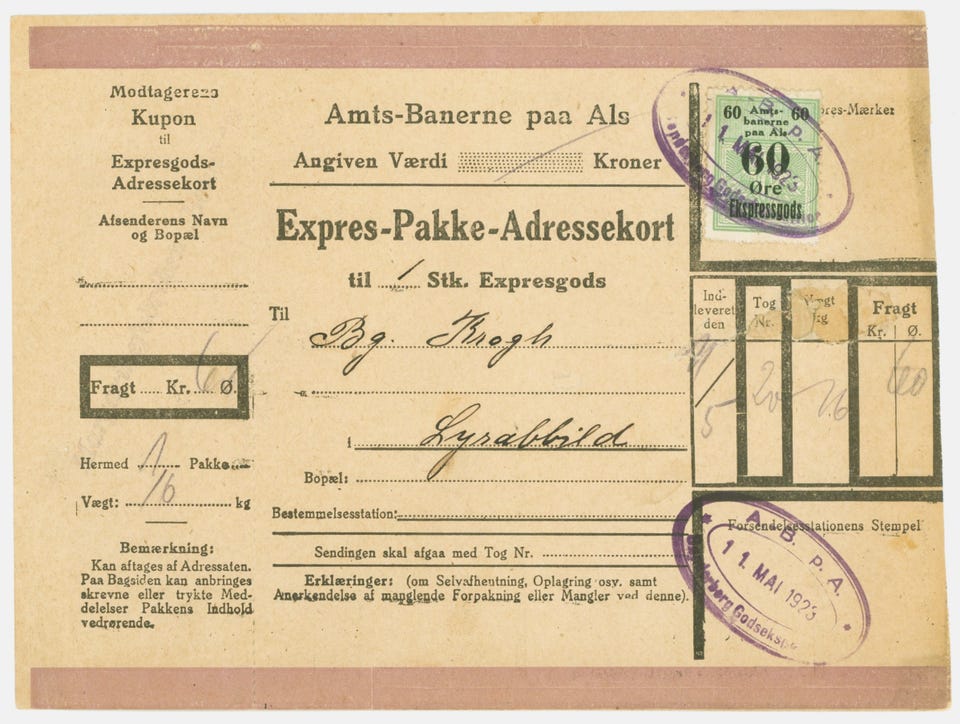 Modtagerens
Kupon
til
Expresgods-
Adressekort
Afsenderens Navn
og Bopæl
Fragt Kr. 6 Ø.
Hermed 1 Pakke
Vægt: 16 kg
Bemærkning:
Kan aftages af Adressaten.
Paa Bagsiden kan anbringes
skrevne eller trykte Med-
delelser Pakkens Indhold
vedrørende.
Amts-Banerne paa Als
Angiven Værdi Kroner
Expres-Pakke-Adressekort
til 1 Stk. Expresgods
Til
Bg. Krogh
i Lysabbild
Bopæl:
Bestemmelsesstation:
Sendingen skal afgaa med Tog Nr.
Erklæringer: (om Selvafhentning, Oplagring osv. samt
Anerkendelse af manglende Forpakning eller Mangler ved denne).
60 Amts- 60
banerne
paa Als
60
Øre
Ekspressgods
A. B. P. A.
11. MAI 1923
Sønderborg Godsekspeditor
pres-Mærker
Ind-
leveret
den
Tog
Nr.
Vægt
kg
Fragt
Kr. Ø.
11/5
20
16
60
Forsendelsesstationens Stempel
A. B. P. A.
11. MAI 1923
Sønderborg Godseksp